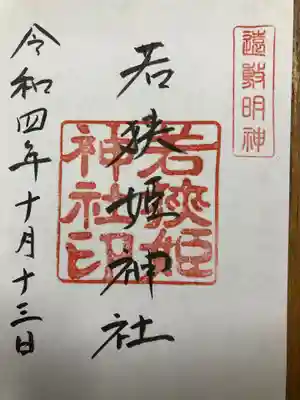 遠敷明神
若狭姫神社
若狭姫神社印
令和四年十月十三日